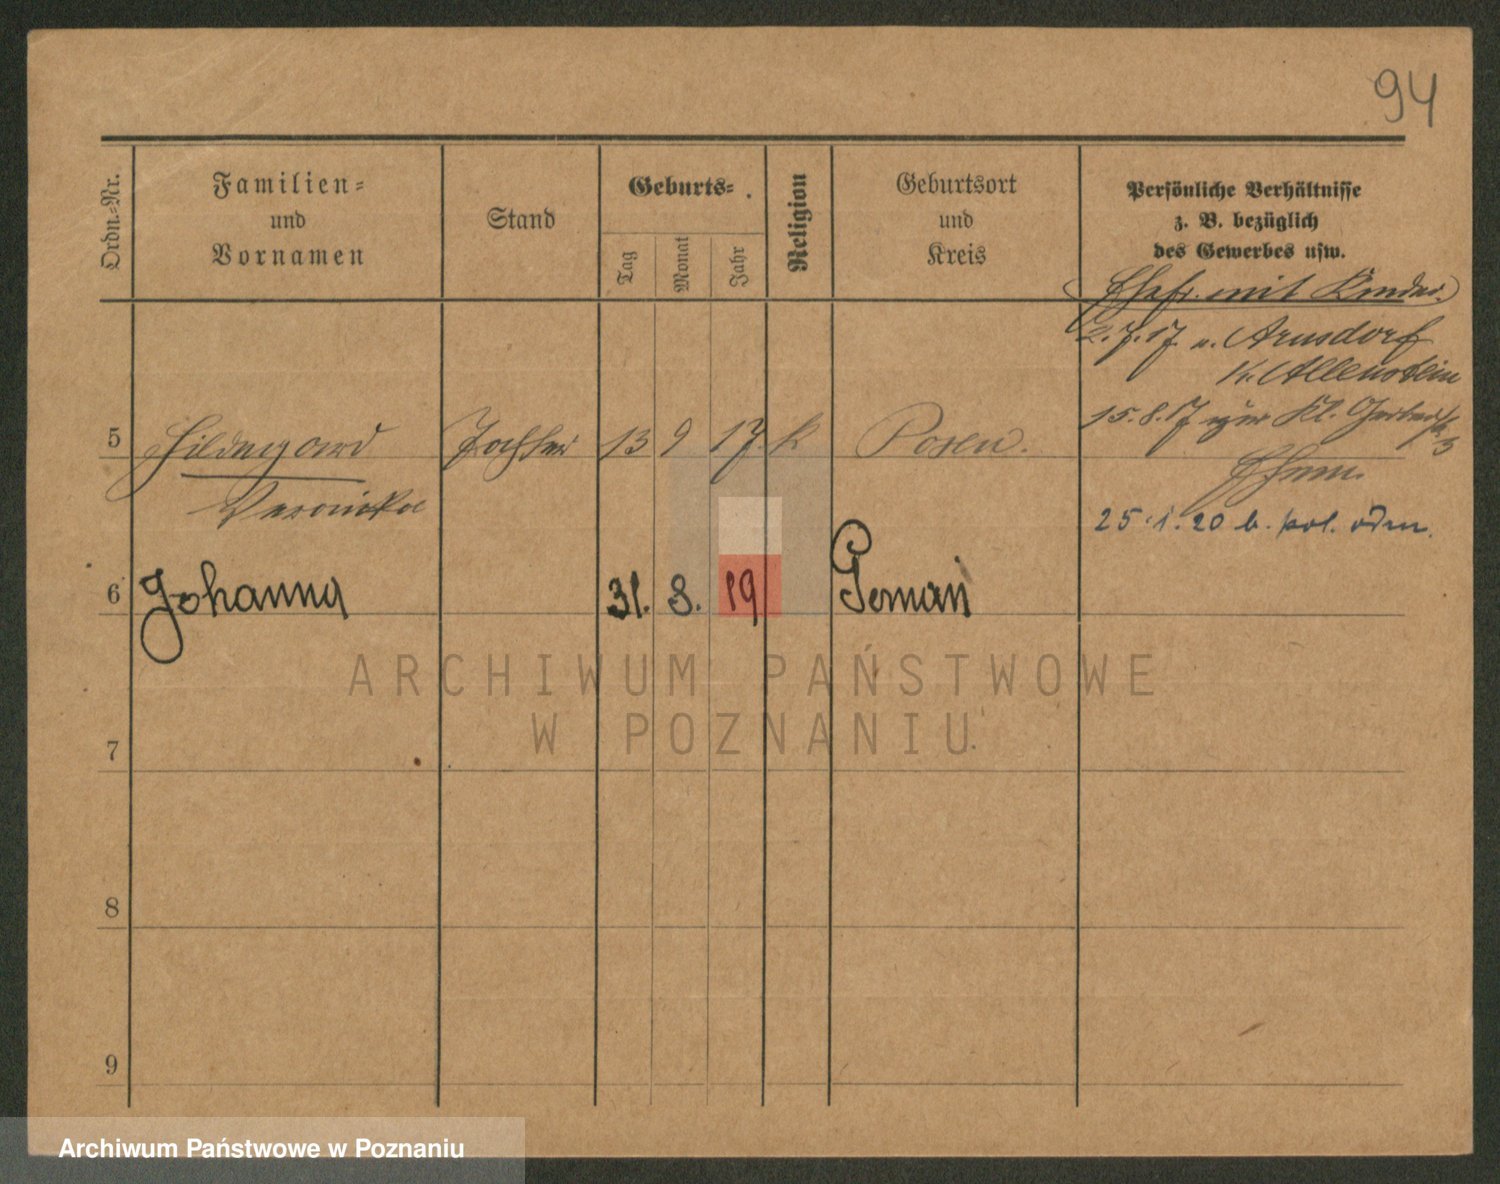 94
Ordn.-Nr.
Familien-
und
Vornamen
Stand
Geburts-
Tag
Monat
Jahr
Religion
Geburtsort
und
Kreis
Persönliche Verhältnisse
z. B. bezüglich
des Gewerbes usw.
Ehefr. mit Kinder.
2.7.17 n. Arnsdorf
Kr. Allenstein
15.8.17 zur Kl. Gerber
5 Hildegard Tochter 13 9 17. k Posen.
Veronika
Ehem.
25.1.20 b. pol.
6 Johanna 31. 8. 19
ARCHIWUM PAŃSTWOWE
W POZNANIU
7
8
9
Archiwum Państwowe w Poznaniu